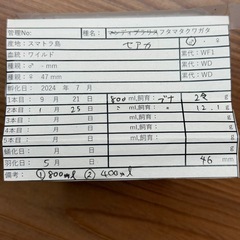 管理No: 種名: フタマタクワガタ
産地: スマトラ島 セアカ ♂ ・ ♀
血統: ワイルド 累代: WF1
♂ - mm 累代: WD
♀ 47 mm 累代: WD
孵化日: 2024 年 7 月
1本目: 9 月 21 日 800 ml,飼育: ブナ
2本目: 1 月 25 日 ml,飼育: 12.1
3本目: 月 日 ml,飼育:
4本目: 月 日 ml,飼育:
5本目: 月 日 ml,飼育:
蛹化日: 月 日
羽化日: 5 月 日 46 mm
備考: ①800ml ②400ml